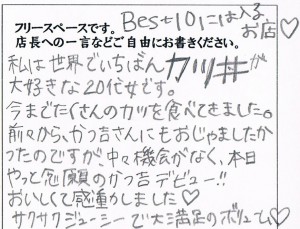 フリースペースです。
店長への一言などご自由にお書きください。
Best10には入る
お店♡
私は世界でいちばんカツ丼が
大好きな20代女です。
今までたくさんのカツを食べてきました。
前々から、かつ吉さんにもおじゃましたか
ったのですが、中々機会がなく、本日
やっと念願のかつ吉デビュー!!
おいしくて感動しました♡
サクサクジューシーで大満足のボリューム♡